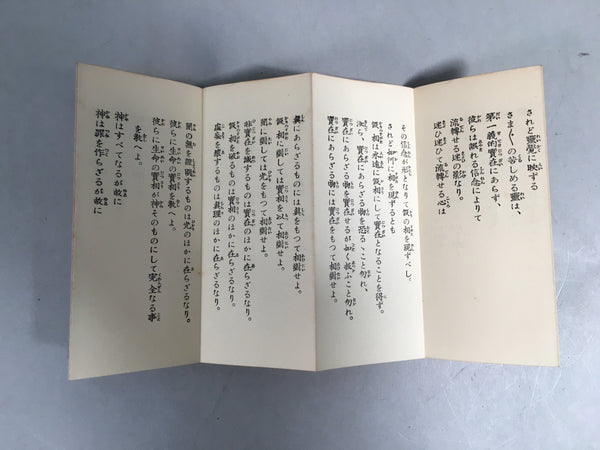 されど靈魔に映ずる
さま〴〵の苦しめる靈は、
第一義的實在にあらず、
彼らは誤れる信念によりて
流轉せる迷の影なり。
迷ひ迷ひて流轉せる心は
その信念が形となりて假の相を現ずべし。
されど如何に相を現ずるとも
假相は永遠に假相にして實在となることを得ず。
汝ら、實在にあらざる物を恐るゝこと勿れ、
實在にあらざる物を實在せるが如く扱ふこと勿れ。
實在にあらざる物には實在をもつて相對せよ。
眞にあらざるものには眞をもつて相對せよ。
假相に對しては實相を以て相對せよ。
闇に對しては光をもつて相對せよ。
非實在を滅するものは實在のほかに在らざるなり。
假相を破るものは實相のほかに在らざるなり。
虛妄を壞するものは眞理のほかに在らざるなり。
闇の無を證明するものは光のほかに在らざるなり。
彼らに生命の實相を敎へよ。
彼らに生命の實相が神そのものにして完全なる事
を敎へよ。
神はすべてなるが故に
神は罪を作らざるが故に